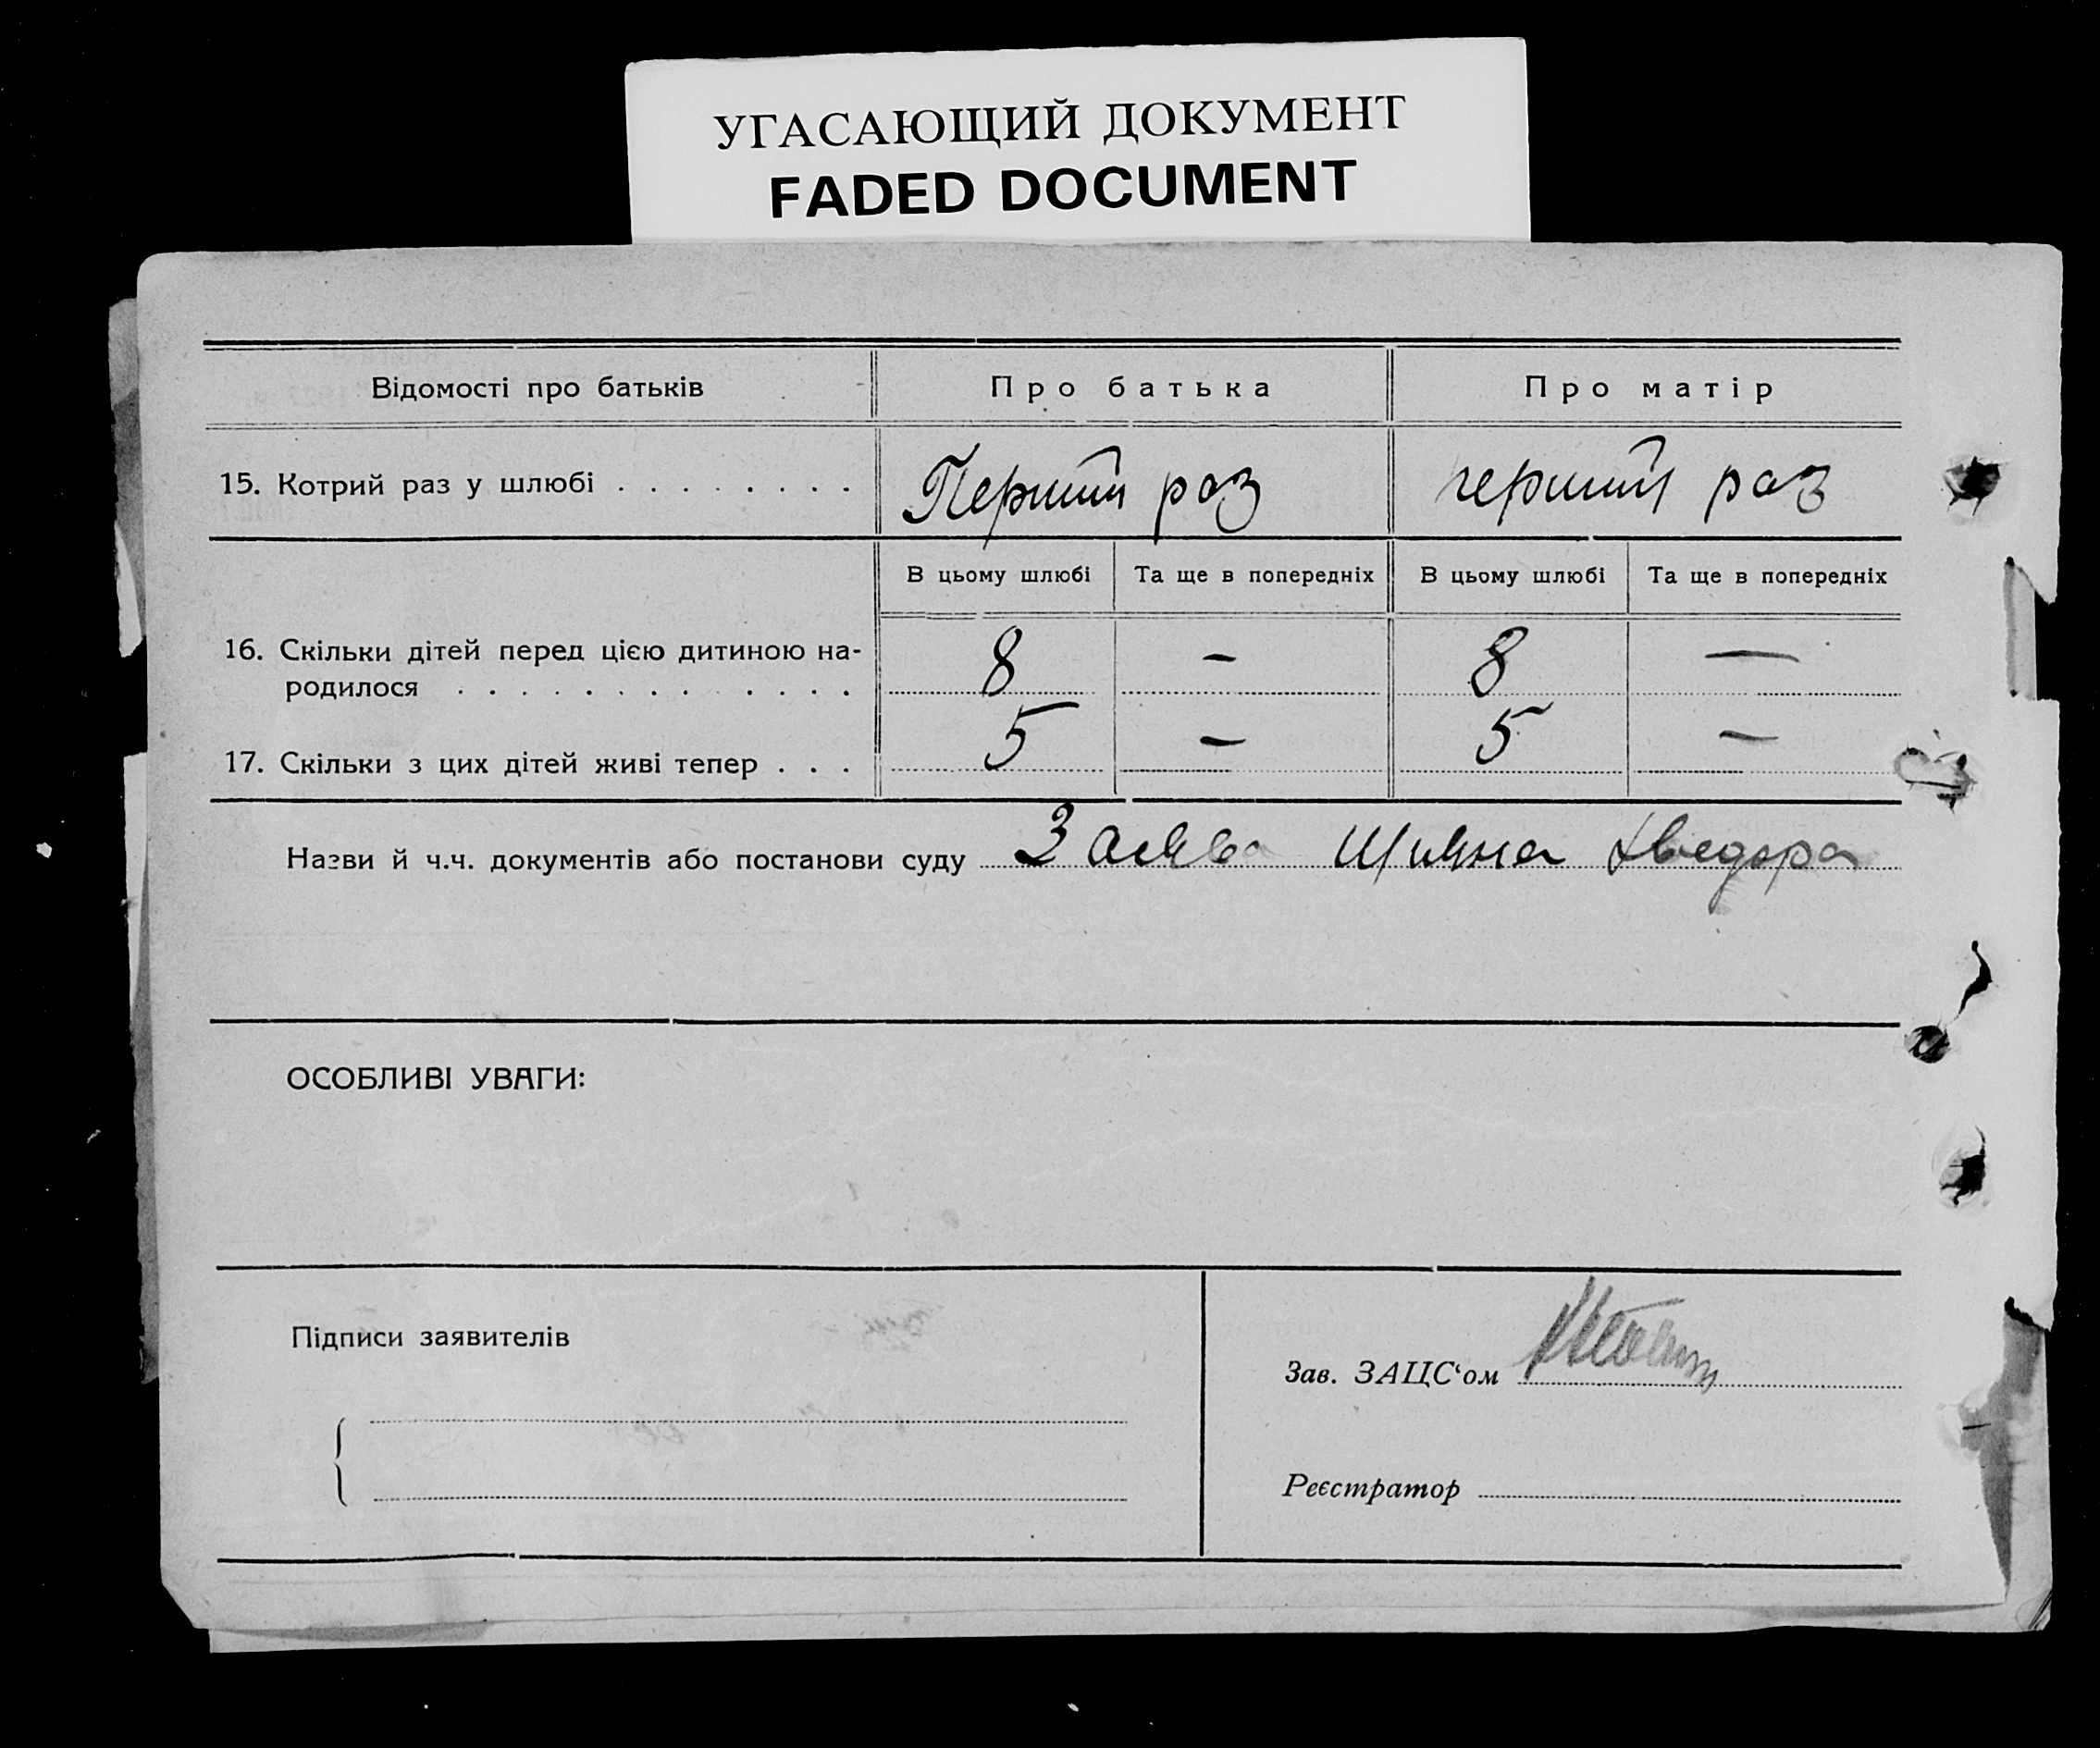 УГАСАЮЩИЙ ДОКУМЕНТ
FADED DOCUMENT
Відомості про батьків
Про батька
Про матір
15. Котрий раз у шлюбі . . . . . . . .
Перший раз
перший раз
В цьому шлюбі
Та ще в попередніх
В цьому шлюбі
Та ще в попередніх
16. Скільки дітей перед цією дитиною на-
родилося . . . . . . . . . . . . .
8
-
8
—
17. Скільки з цих дітей живі тепер . . .
5
-
5
—
Назви й ч.ч. документів або постанови суду Заява
ОСОБЛИВІ УВАГИ:
Підписи заявителів
Зав. ЗАЦС‘ом
Реєстратор